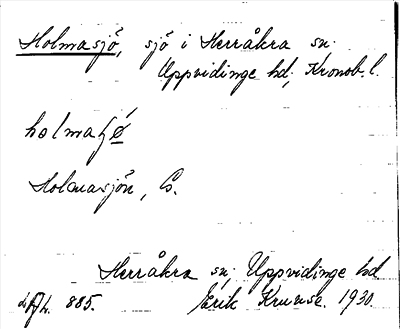 Holmasjö, sjö i Herråkra sn.
Uppvidinge hd, Kronob. l.
holma
Holmasjön,
Herråkra sn, Uppvidinge hd
885. Erik Kruuse. 1930.